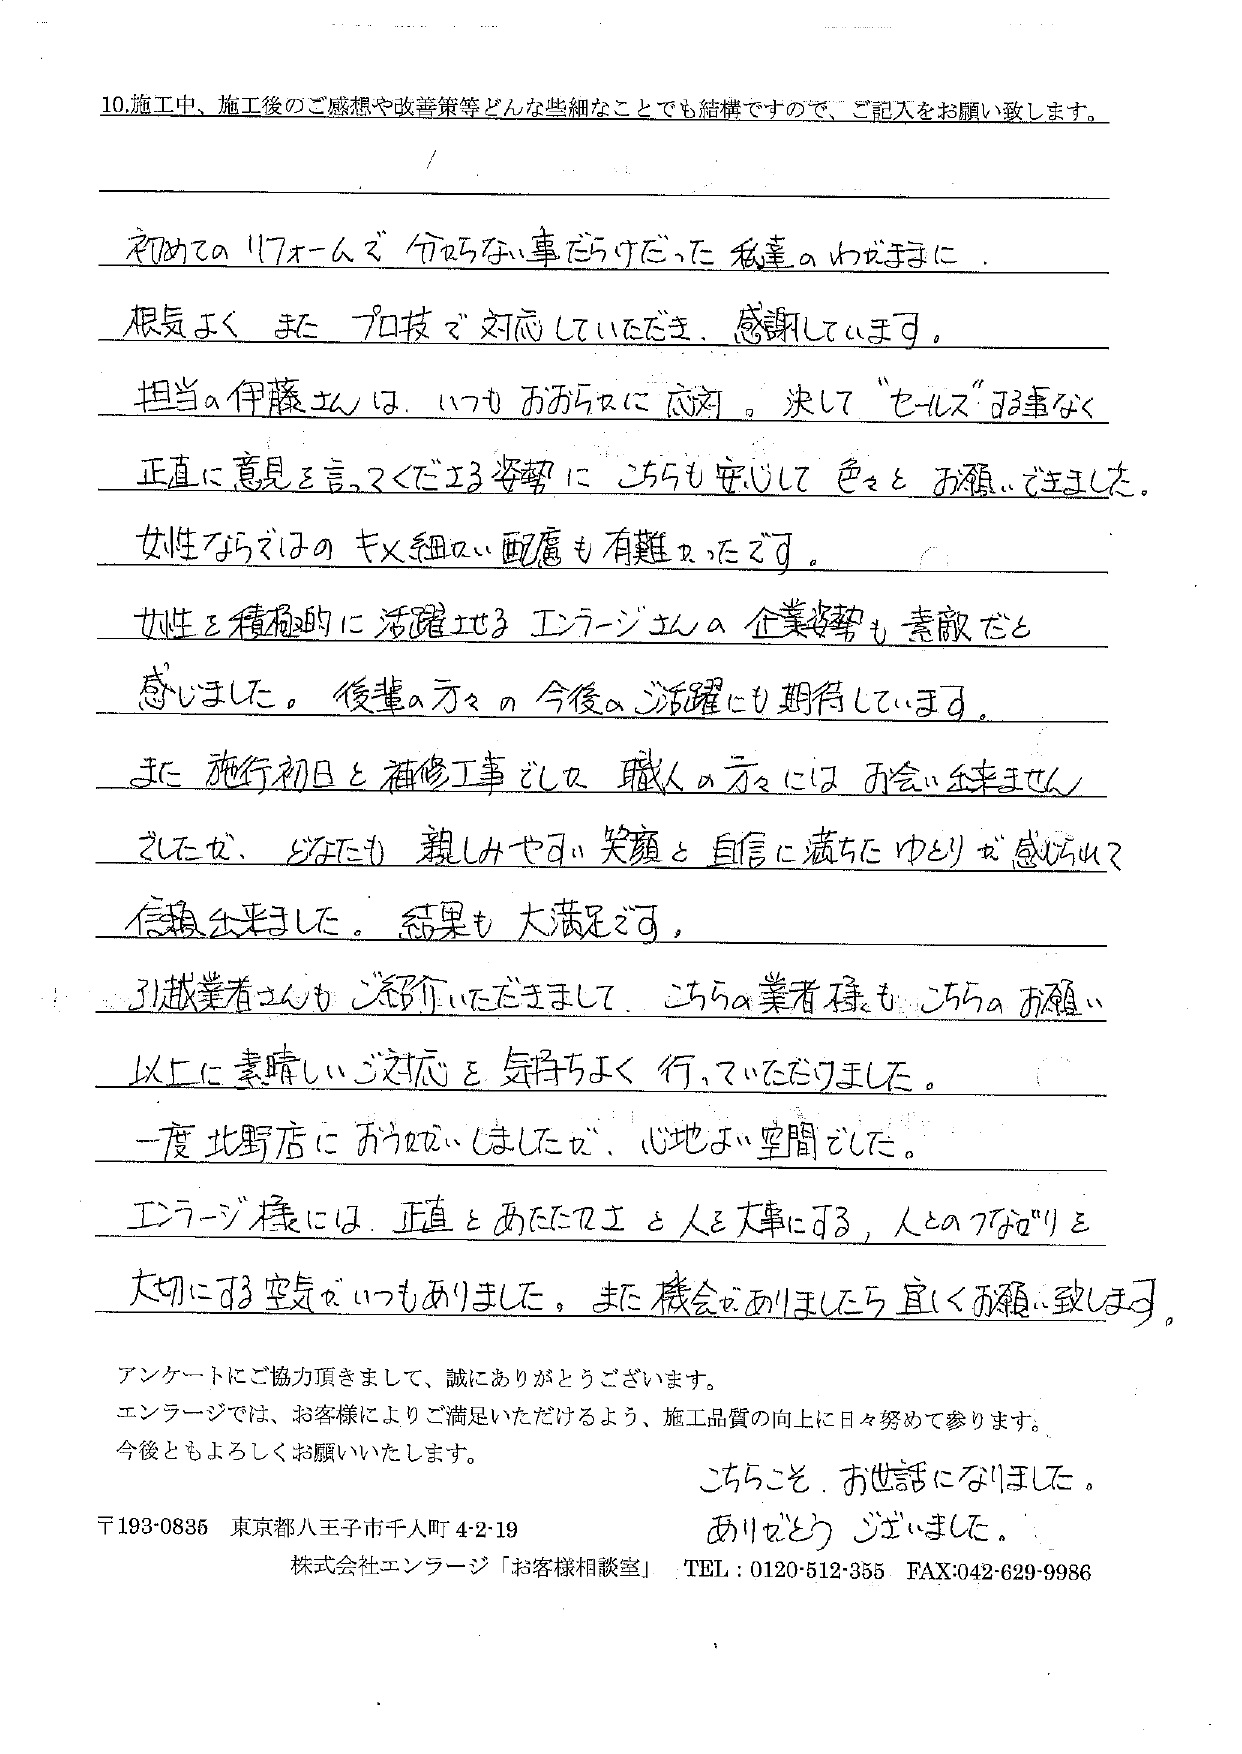 10.施工中、施工後のご感想や改善策等どんな些細なことでも結構ですので、ご記入をお願い致します。
初めてのリフォームで 分からない事だらけだった 私達のわがままに
根気よく また プロ技で対応していただき、感謝しています。
担当の伊藤さんは、いつもおおらかに応対。決して"セールス"する事なく
正直に意見を言ってくださる姿勢に こちらも安心して 色々と お願いできました。
女性ならではの キメ細かい配慮も有難かったです。
女性を積極的に活躍させる エンラージさんの 企業姿勢も素敵だと
感じました。後輩の方々の今後のご活躍にも期待しています。
また 施行初日と補修工事でしか 職人の方々には お会い出来ません
でしたが、どなたも 親しみやすい笑顔と自信に満ちたゆとりが感じられて
信頼出来ました。結果も大満足です。
引越業者さんも ご紹介いただきまして、こちらの業者様も こちらのお願い
以上に素晴しいご対応を 気持ちよく 行っていただけました。
一度北野店におうかがいしましたが、心地よい空間でした。
エンラージ様には、正直とあたたかさと人を大事にする,人とのつながりを
大切にする空気がいつもありました。また機会がありましたら宜しくお願い致します。
アンケートにご協力頂きまして、誠にありがとうございます。
エンラージでは、お客様によりご満足いただけるよう、施工品質の向上に日々努めて参ります。
今後ともよろしくお願いいたします。
こちらこそ、お世話になりました。
ありがとう ございました。
〒193-0835 東京都八王子市千人町 4-2-19
株式会社エンラージ「お客様相談室」 TEL:0120-512-355 FAX:042-629-9986